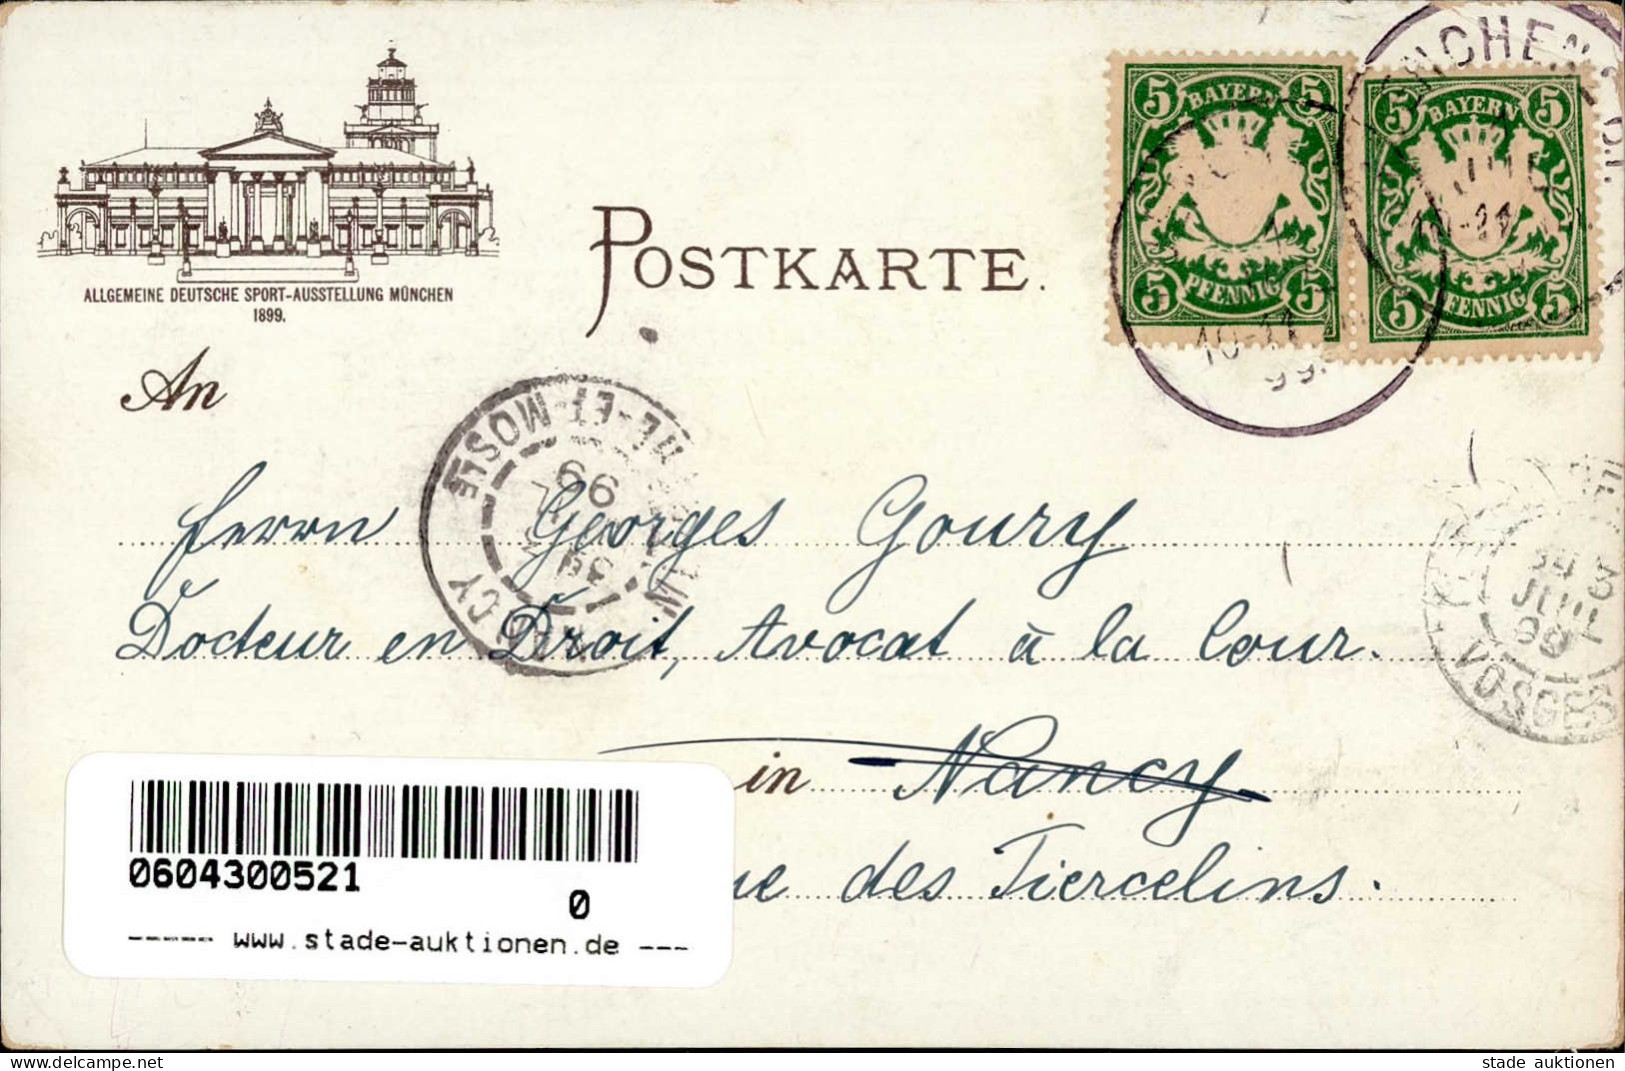 ALLGEMEINE DEUTSCHE SPORT-AUSSTELLUNG MÜNCHEN
1899.
POSTKARTE.
5 BAYERN 5
5 PFENNIG 5
5 BAYERN 5
5 PFENNIG 5
10-11
99.
An
ET-MOSLE
99
Herrn Georges Goury
Docteur en Droit, Avocat à la Cour.
JUIL
99
VOSGES
in Nancy
des Tiercelins.
0604300521
0
------ www.stade-auktionen.de ---
stade auktionen